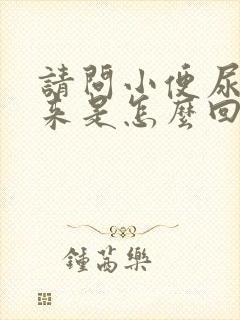 請問小便尿
來是怎麼回
鍾萵樂